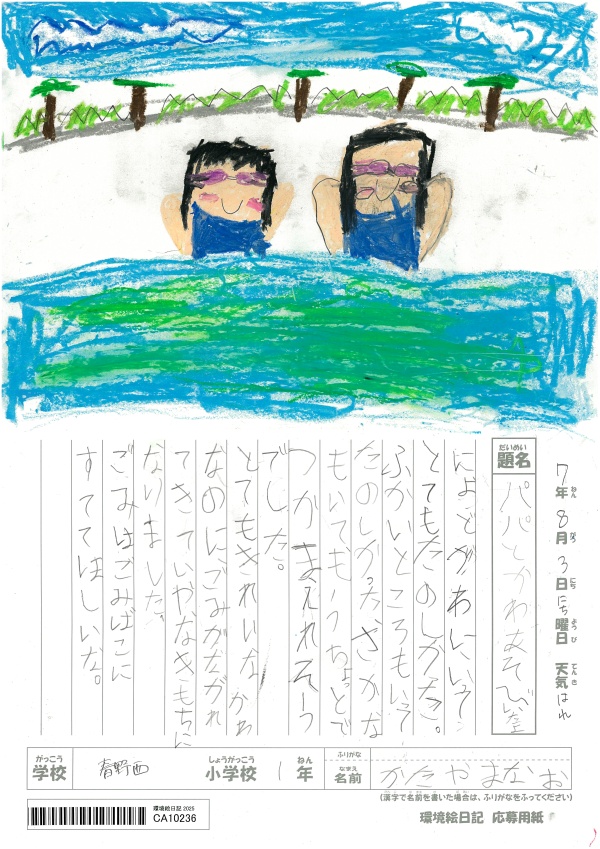 7年8月3日にち曜日 天気はれ
ねん がつ にち ようび てんき
だいめい
題名
パパとかわあそび
によどがわにいって
とてもたのしかた。
ふかいところもいって
たのしかったさかな
もいてもうちょっとで
つかまえれそう
でした。
とてもきれいなかわ
なのにごみがながれ
てきていやなきもちに
なりました。
ごみはごみばこに
すててほしいな。
がっこう
学校
春野西
しょうがっこう
小学校
1
ねん
年
ふりがな
なまえ
名前
かたやまなお
(漢字で名前を書いた場合は、ふりがなをふってください)
環境絵日記 2025
CA10236
環境絵日記 応募用紙